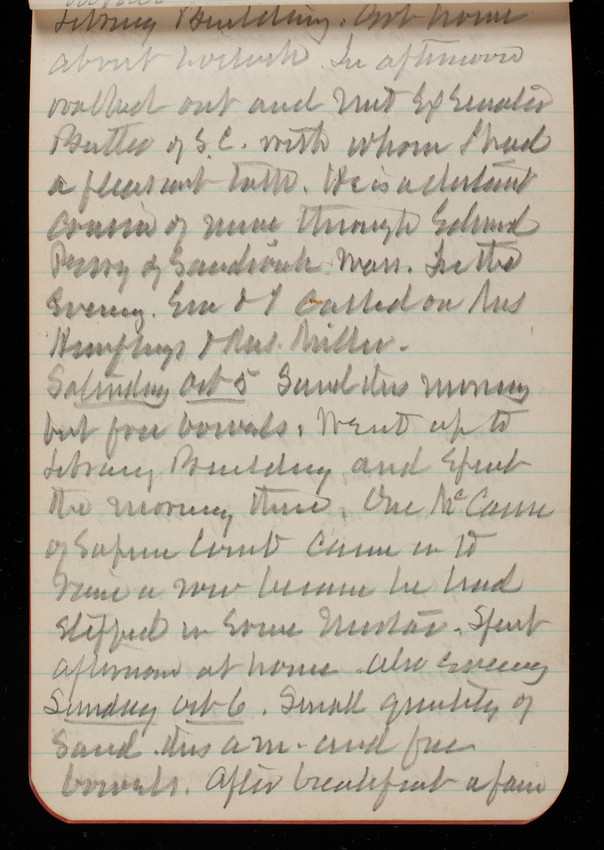 Library Building. Got home
about o'clock. In afternoon
walked out and met Ex Senator
Butler of S.C. with whom I had
a pleasant talk. He is a distant
cousin of mine through Edward
Perry of Sandwich Mass. In the
Evening. Em & I called on Mrs
Humphreys & Mrs. Miller.
Saturday Oct 5 Sand this morning
but free bowels. Went up to
Library Building and spent
the morning there. One McCann
of Supreme Court came in to
raise a row because he had
stepped in some mortar. Spent
afternoon at home also Evening
Sunday Oct 6. Small quantity of
Sand this a m. and free
bowels. After breakfast a fair